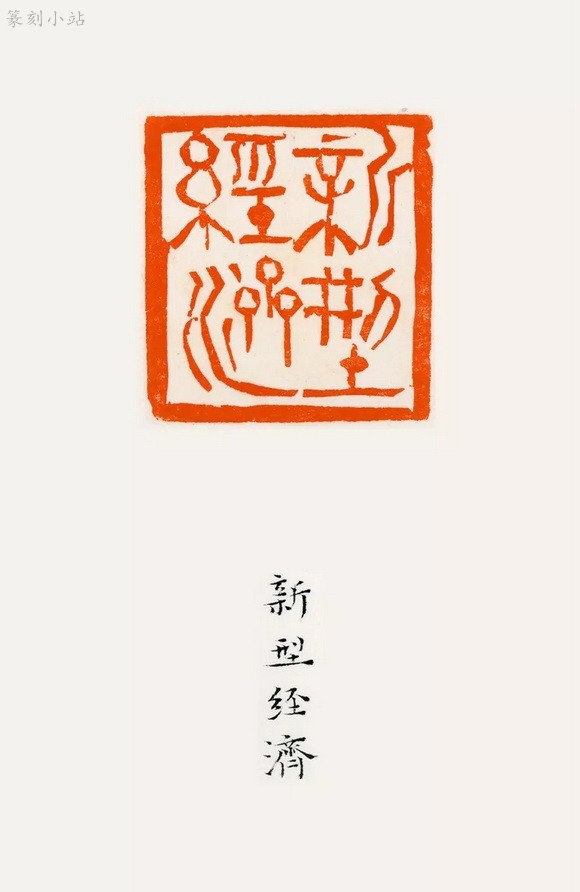 篆刻小站
新型
經濟
新型经濟